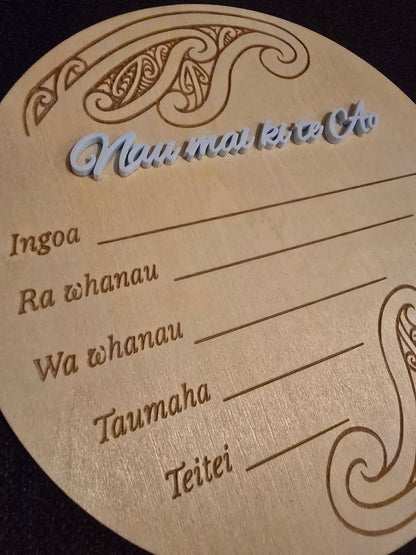 Nau mai ki te Ao
Ingoa
Ra whanau
Wa whanau
Taumaha
Teitei